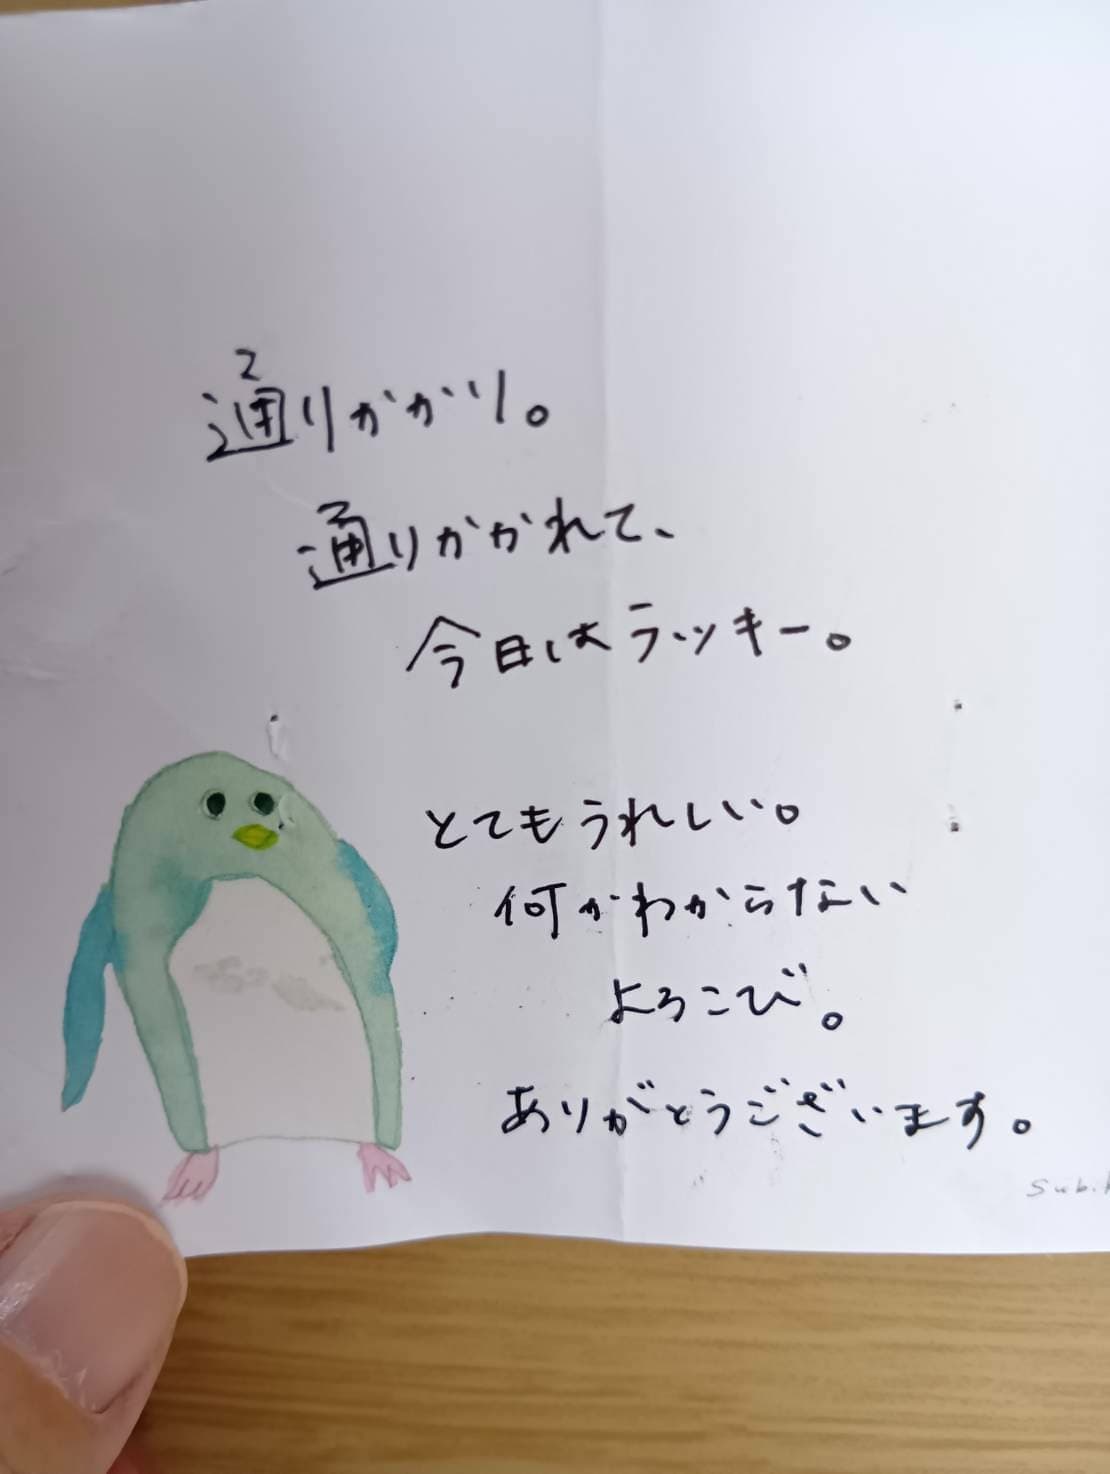 通りがかり。
通りがかれて、
今日はラッキー。
とてもうれしい。
何かわからない
よろこび。
ありがとうございます。